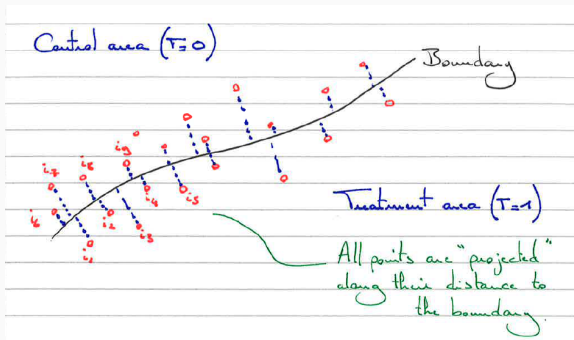 Control area (T=0)
Boundary
i7
i8
i9
i6
i4
i5
i2
i3
i1
Treatment area (T=1)
All points are "projected"
along their distance to
the boundary.